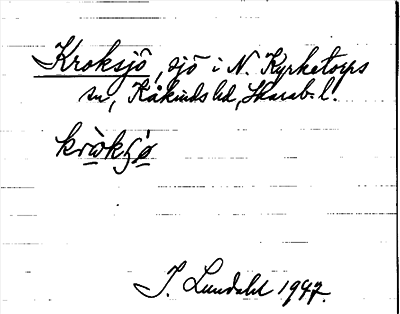 Kroksjö, sjö i N. Kyrketorps
sn, Kåkinds hd, Skarab. l.
krωkʃø
I. Lundahl 1947.